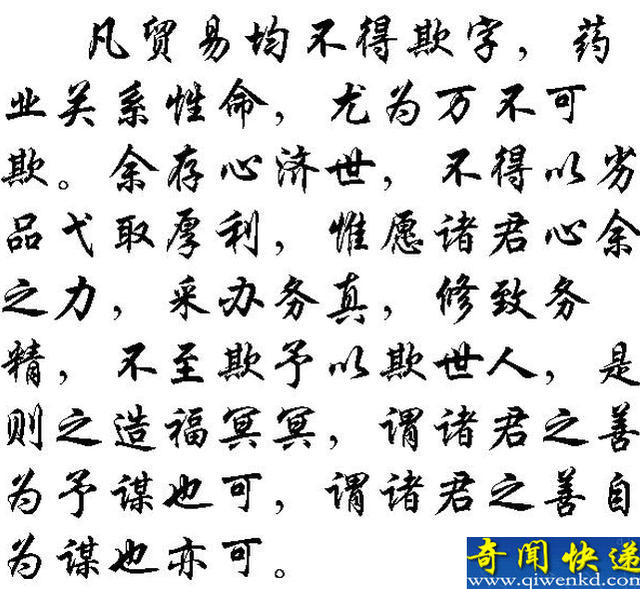 凡贸易均不得欺字，药
业关系性命，尤为万不可
欺。余存心济世，不得以劣
品弋取厚利，惟愿诸君心余
之力，采办务真，修致务
精，不至欺予以欺世人，是
则之造福冥冥，谓诸君之善
为予谋也可，谓诸君之善自
为谋也亦可。
奇闻快递
www.qiwenkd.com